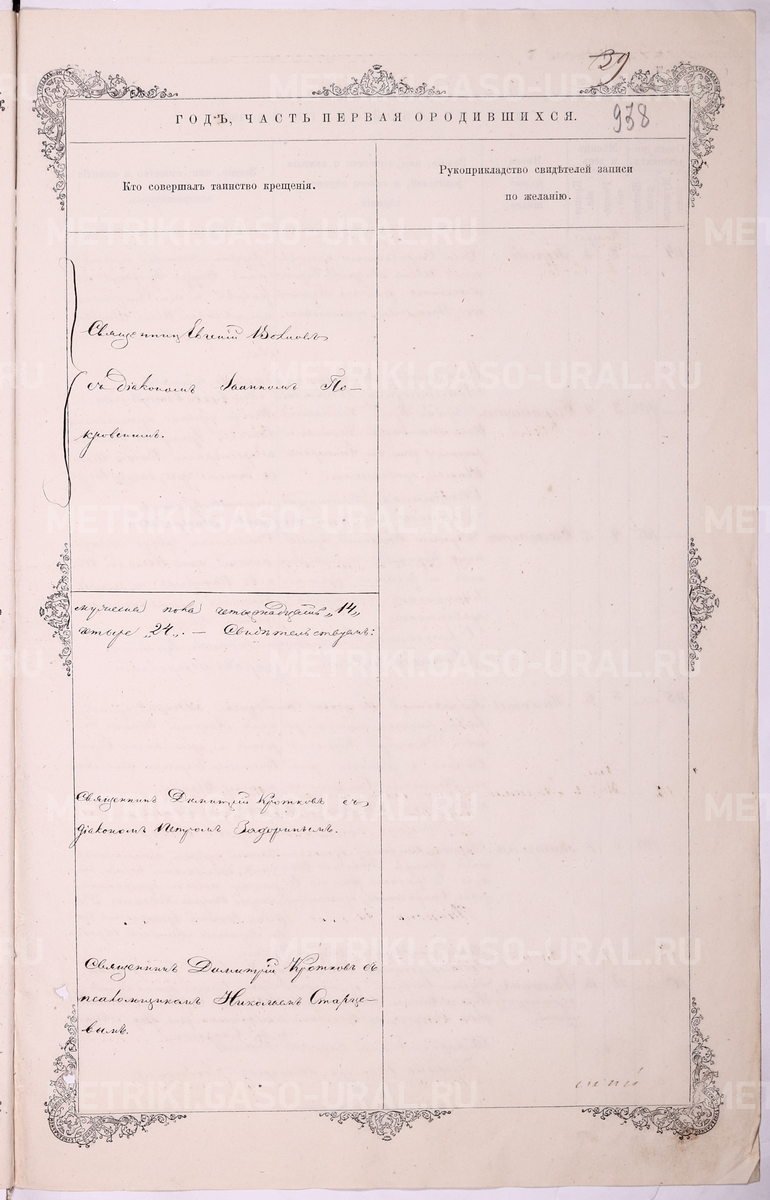 139
938
ГОДЪ, ЧАСТЬ ПЕРВАЯ О РОДИВШИХСЯ.
Кто совершалъ таинство крещенія.
Рукоприкладство свидѣтелей записи
по желанію.
Священникъ Евгеній
съ діакономъ Іоанномъ По-
кровскимъ.
мужеска пола четырнадцать „14„
четыре „24„. — Свидѣтельствуемъ:
Священникъ Димитрій Кротковъ съ
діакономъ Петромъ
Священникъ Димитрій Кротковъ съ
псаломщикомъ Николаемъ Старце-
вымъ.
METRIKI.GASO-URAL.RU